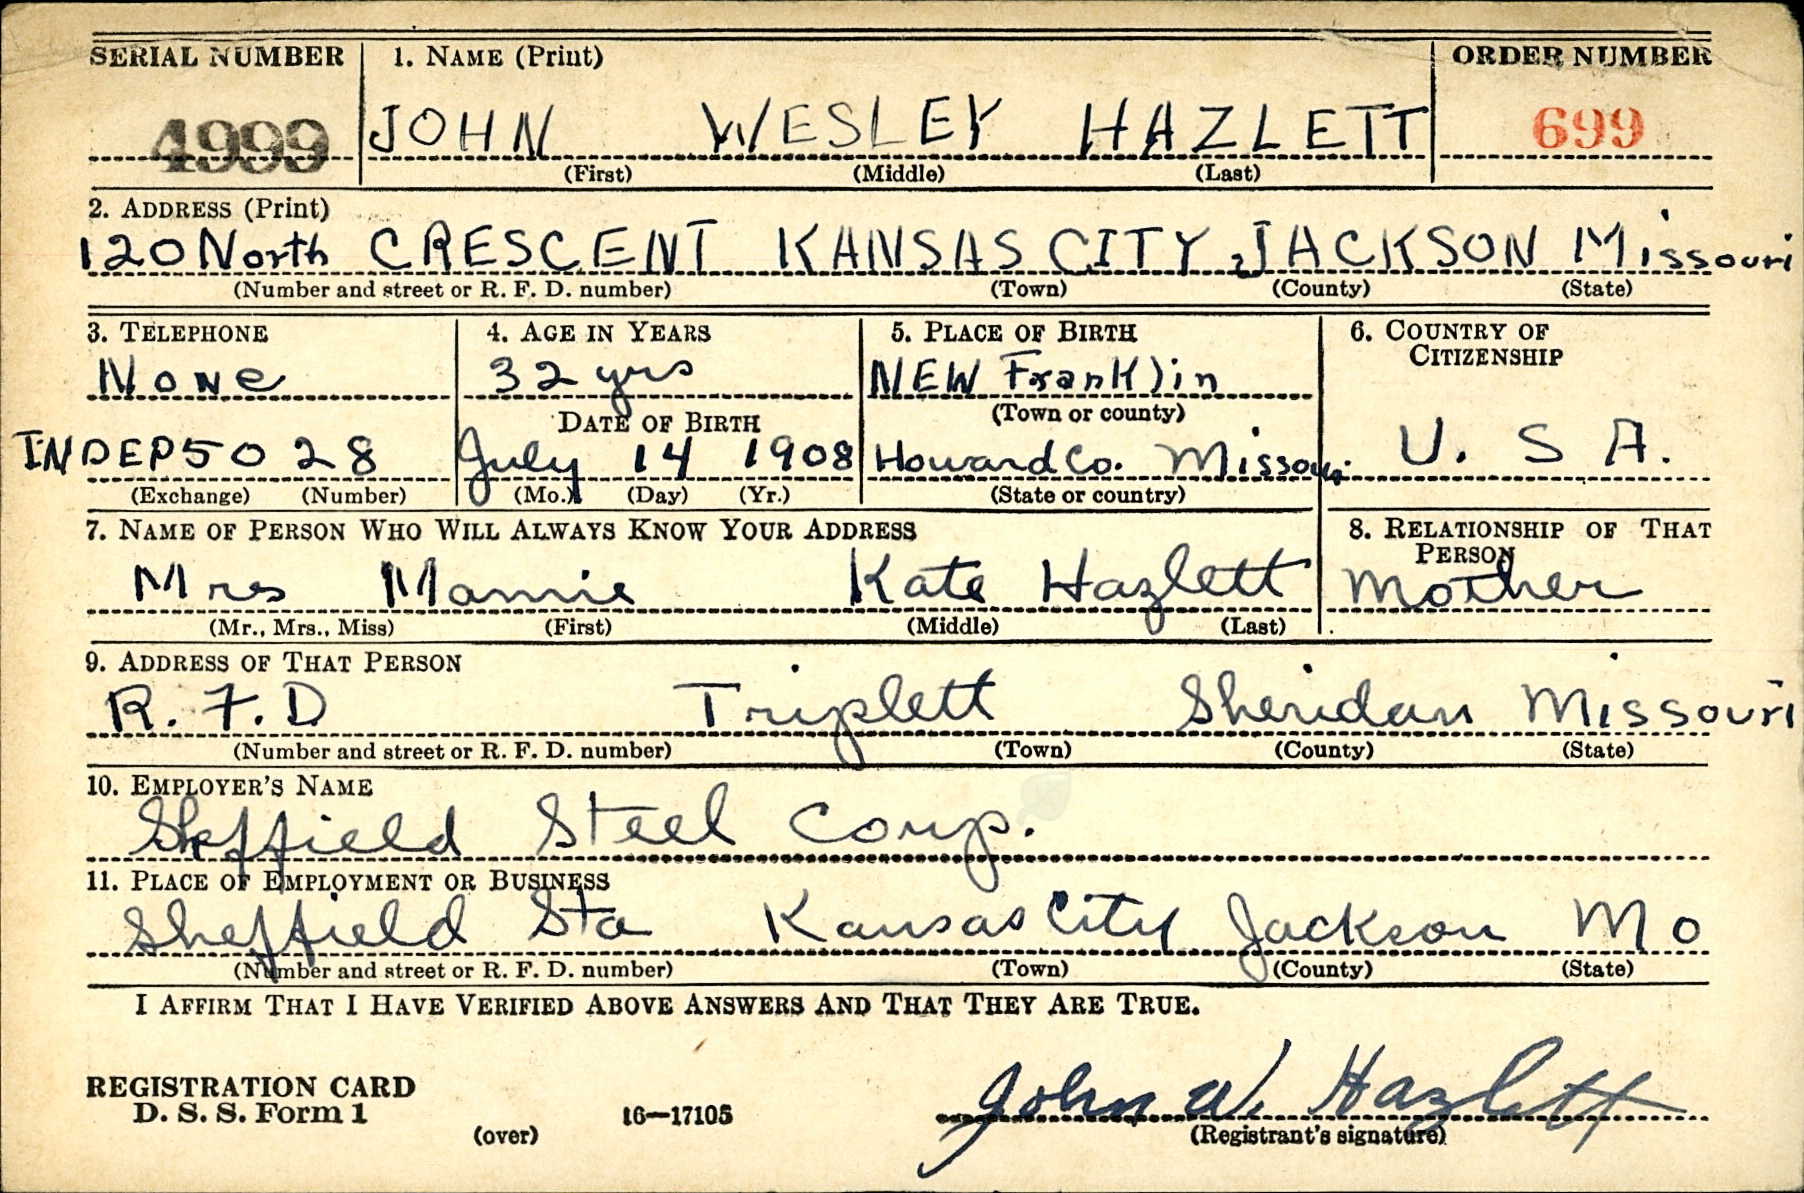 SERIAL NUMBER 1. NAME (Print) ORDER NUMBER
4999 JOHN WESLEY HAZLETT 699
(First) (Middle) (Last)
2. ADDRESS (Print)
120 North CRESCENT KANSAS CITY JACKSON Missouri
(Number and street or R. F. D. number) (Town) (County) (State)
3. TELEPHONE 4. AGE IN YEARS 5. PLACE OF BIRTH 6. COUNTRY OF
CITIZENSHIP
None 32 yrs NEW Franklin
DATE OF BIRTH (Town or county)
INDEP 5028 July 14 1908 Howard Co. Missouri U. S A.
(Exchange) (Number) (Mo.) (Day) (Yr.) (State or country)
7. NAME OF PERSON WHO WILL ALWAYS KNOW YOUR ADDRESS 8. RELATIONSHIP OF THAT
PERSON
Mrs Mamie Kate Hazlett Mother
(Mr., Mrs., Miss) (First) (Middle) (Last)
9. ADDRESS OF THAT PERSON
R. F. D Triplett Sheridan Missouri
(Number and street or R. F. D. number) (Town) (County) (State)
10. EMPLOYER'S NAME
Sheffield Steel Corp.
11. PLACE OF EMPLOYMENT OR BUSINESS
Sheffield Sta Kansas City Jackson Mo
(Number and street or R. F. D. number) (Town) (County) (State)
I AFFIRM THAT I HAVE VERIFIED ABOVE ANSWERS AND THAT THEY ARE TRUE.
REGISTRATION CARD
D. S. S. Form 1 16—17105 John W. Hazlett
(over) (Registrant's signature)